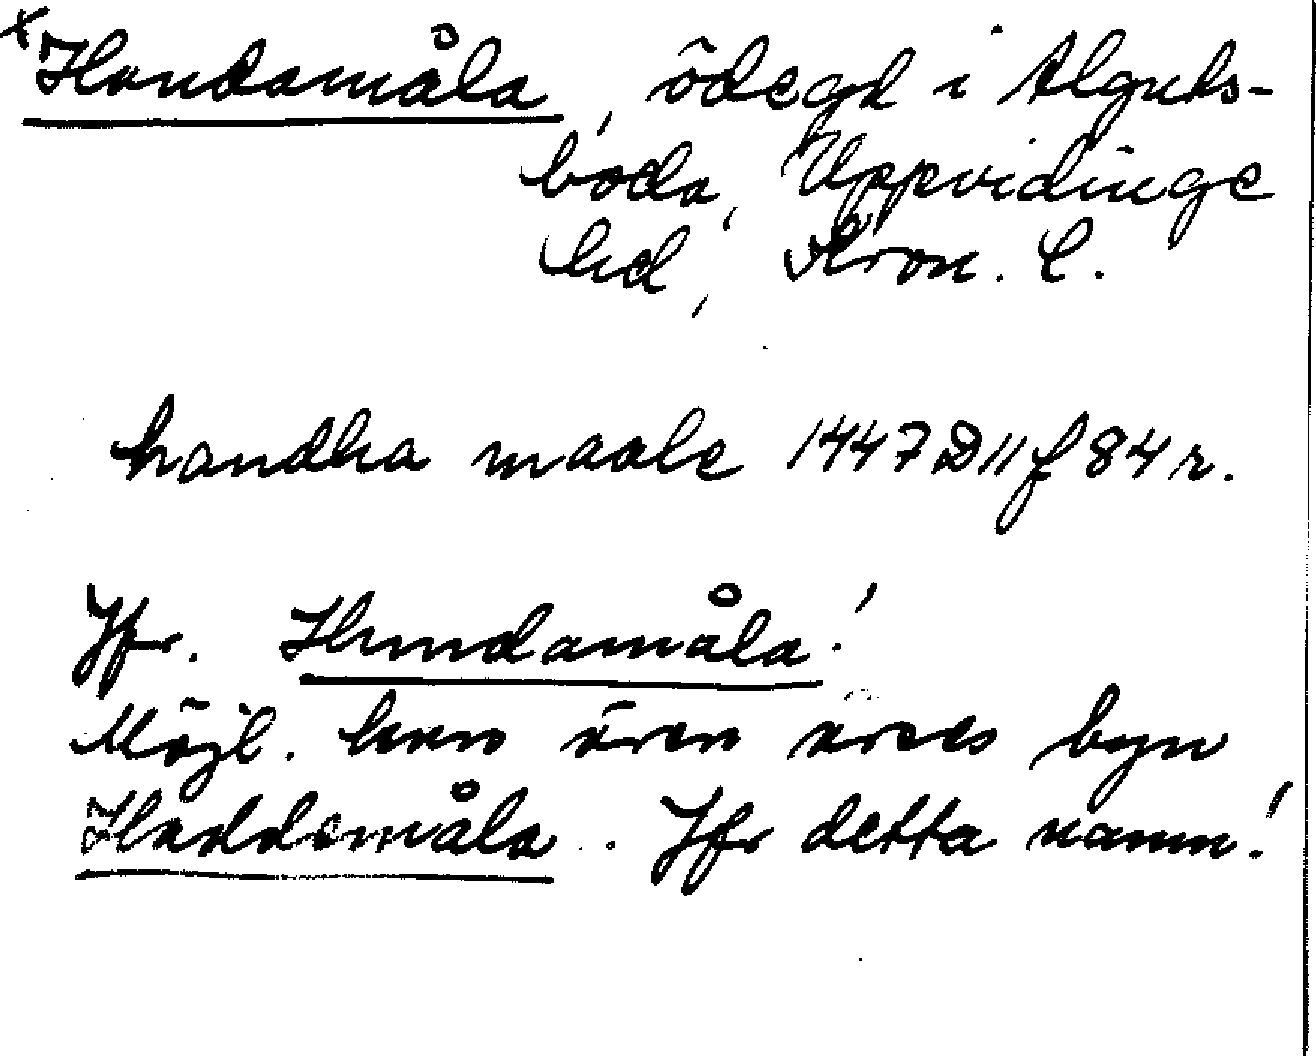 x Handamåla, ödegd i Älgults-
boda, Uppvidinge
hd, Kron. l.
handha maale 1447 D 11 f 84 r.
Jfr. Hundamåla!
Möjl. kan även avses byn
Haddamåla. Jfr detta namn!